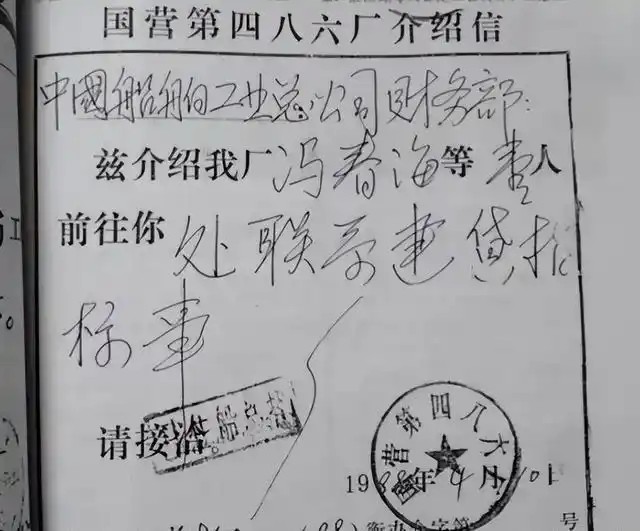 国营第四八六厂介绍信
中國船舶工业总公司财务部:
兹介绍我厂冯春海等壹人
前往你处联系建贷指
标事
请接洽。
国营第四八六厂
1988年4月10日
号